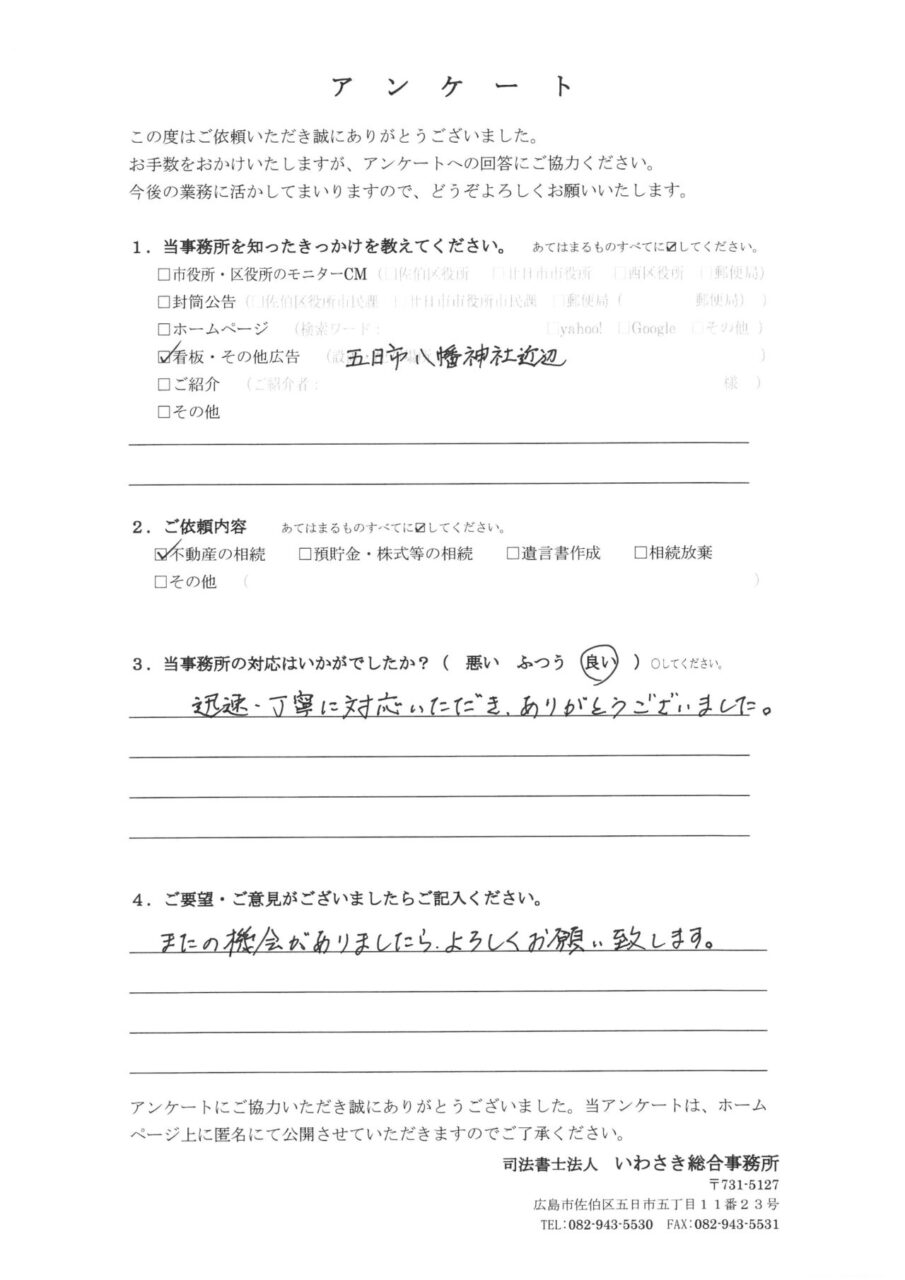 アンケート
この度はご依頼いただき誠にありがとうございました。
お手数をおかけいたしますが、アンケートへの回答にご協力ください。
今後の業務に活かしてまいりますので、どうぞよろしくお願いいたします。
1．当事務所を知ったきっかけを教えてください。 あてはまるものすべてに☑してください。
□市役所・区役所のモニターCM (□佐伯区役所 □廿日市市役所 □西区役所 □郵便局)
□封筒公告 (□佐伯区役所市民課 □廿日市市役所市民課 □郵便局 ( 郵便局) )
□ホームページ (検索ワード： □yahoo! □Google □その他 )
☑看板・その他広告 (設 五日市八幡神社近辺 )
□ご紹介 (ご紹介者： 様 )
□その他
2．ご依頼内容 あてはまるものすべてに☑してください。
☑不動産の相続 □預貯金・株式等の相続 □遺言書作成 □相続放棄
□その他 ( )
3．当事務所の対応はいかがでしたか？ ( 悪い ふつう 良い ) ○してください。
迅速・丁寧に対応いただき、ありがとうございました。
4．ご要望・ご意見がございましたらご記入ください。
またの機会がありましたら、よろしくお願い致します。
アンケートにご協力いただき誠にありがとうございました。当アンケートは、ホーム
ページ上に匿名にて公開させていただきますのでご了承ください。
司法書士法人 いわさき総合事務所
〒731-5127
広島市佐伯区五日市五丁目１１番２３号
TEL:082-943-5530 FAX:082-943-5531